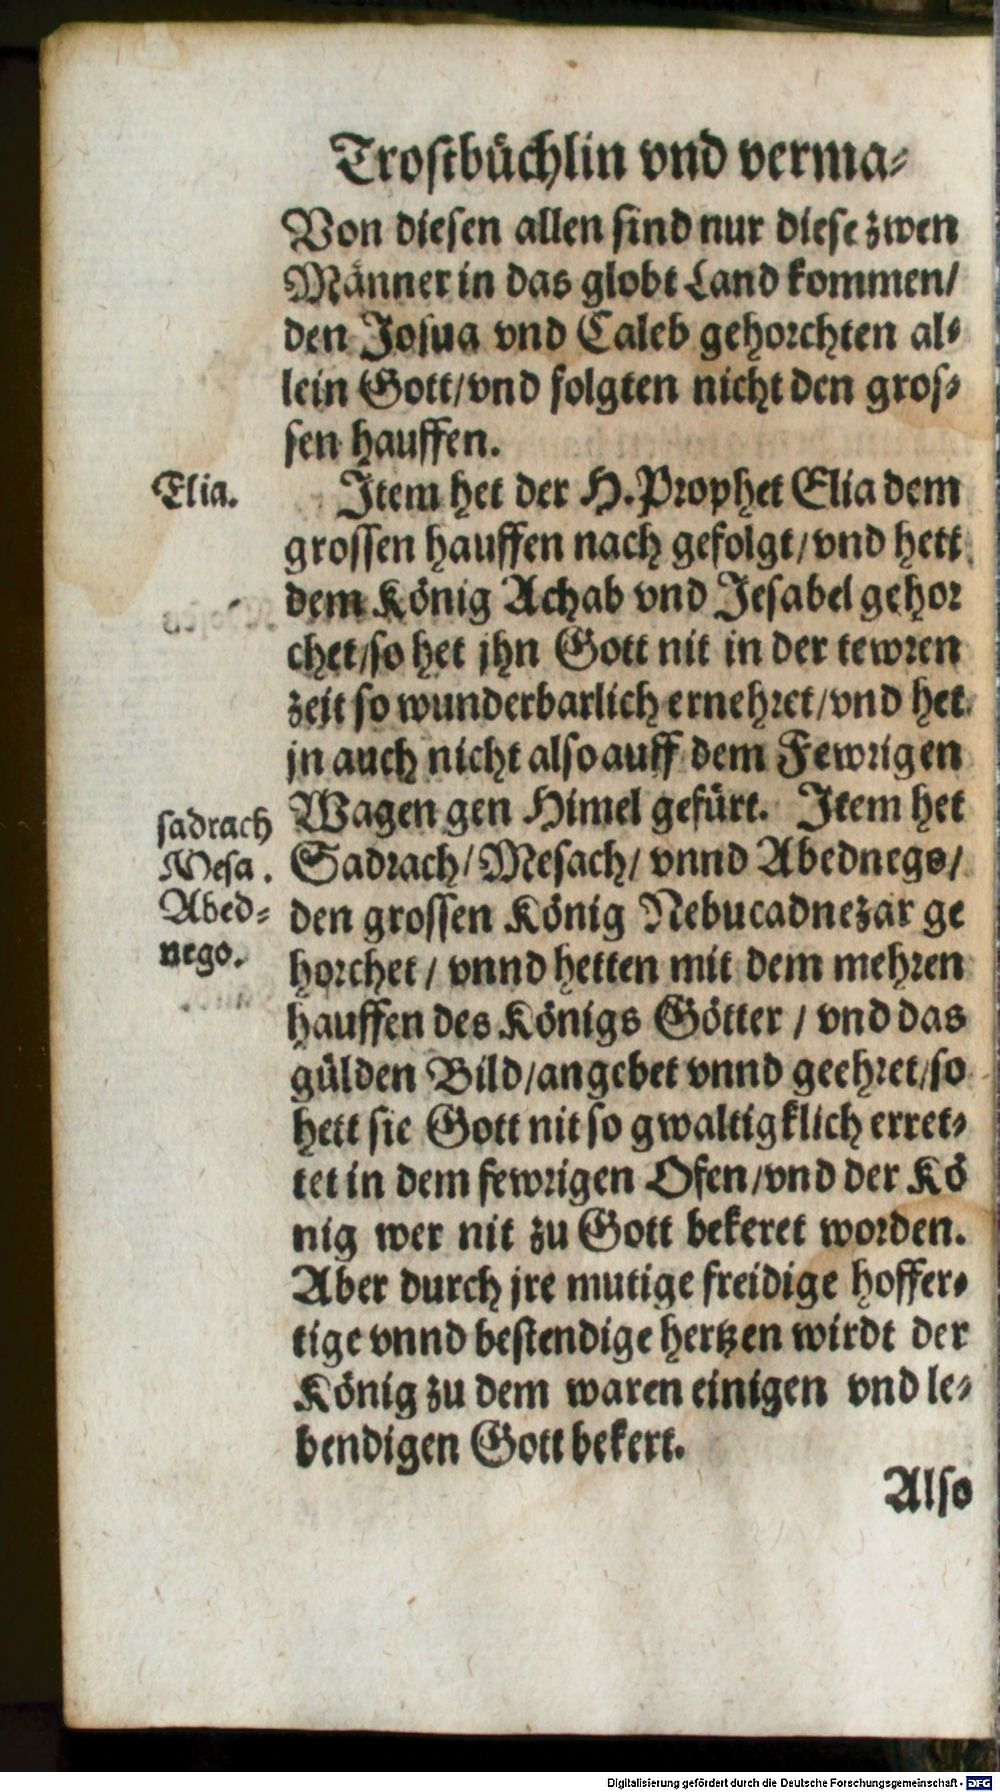 Trostbüchlin vnd verma-
Von diesen allen sind nur diese zwen
Männer in das globt Land kommen/
den Josua vnd Caleb gehorchten al-
lein Gott/vnd folgten nicht den gros-
sen hauffen.
Elia.
Item het der H. Prophet Elia dem
grossen hauffen nach gefolgt/vnd hett
dem König Achab vnd Jesabel gehor
chet/so het jhn Gott nit in der tewren
zeit so wunderbarlich ernehret/vnd het
jn auch nicht also auff dem Fewrigen
Wagen gen Himel gefürt. Item het
sadrach
Mesa.
Abed-
nego.
Sadrach/Mesach/ vnnd Abednego/
den grossen König Nebucadnezar ge
horchet/ vnnd hetten mit dem mehren
hauffen des Königs Götter / vnd das
gülden Bild/angebet vnnd geehret/so
hett sie Gott nit so gwaltigklich erret-
tet in dem fewrigen Ofen/vnd der Kö
nig wer nit zu Gott bekeret worden.
Aber durch jre mutige freidige hoffer-
tige vnnd bestendige hertzen wirdt der
König zu dem waren einigen vnd le-
bendigen Gott bekert.
Also
Digitalisierung gefördert durch die Deutsche Forschungsgemeinschaft - DFG